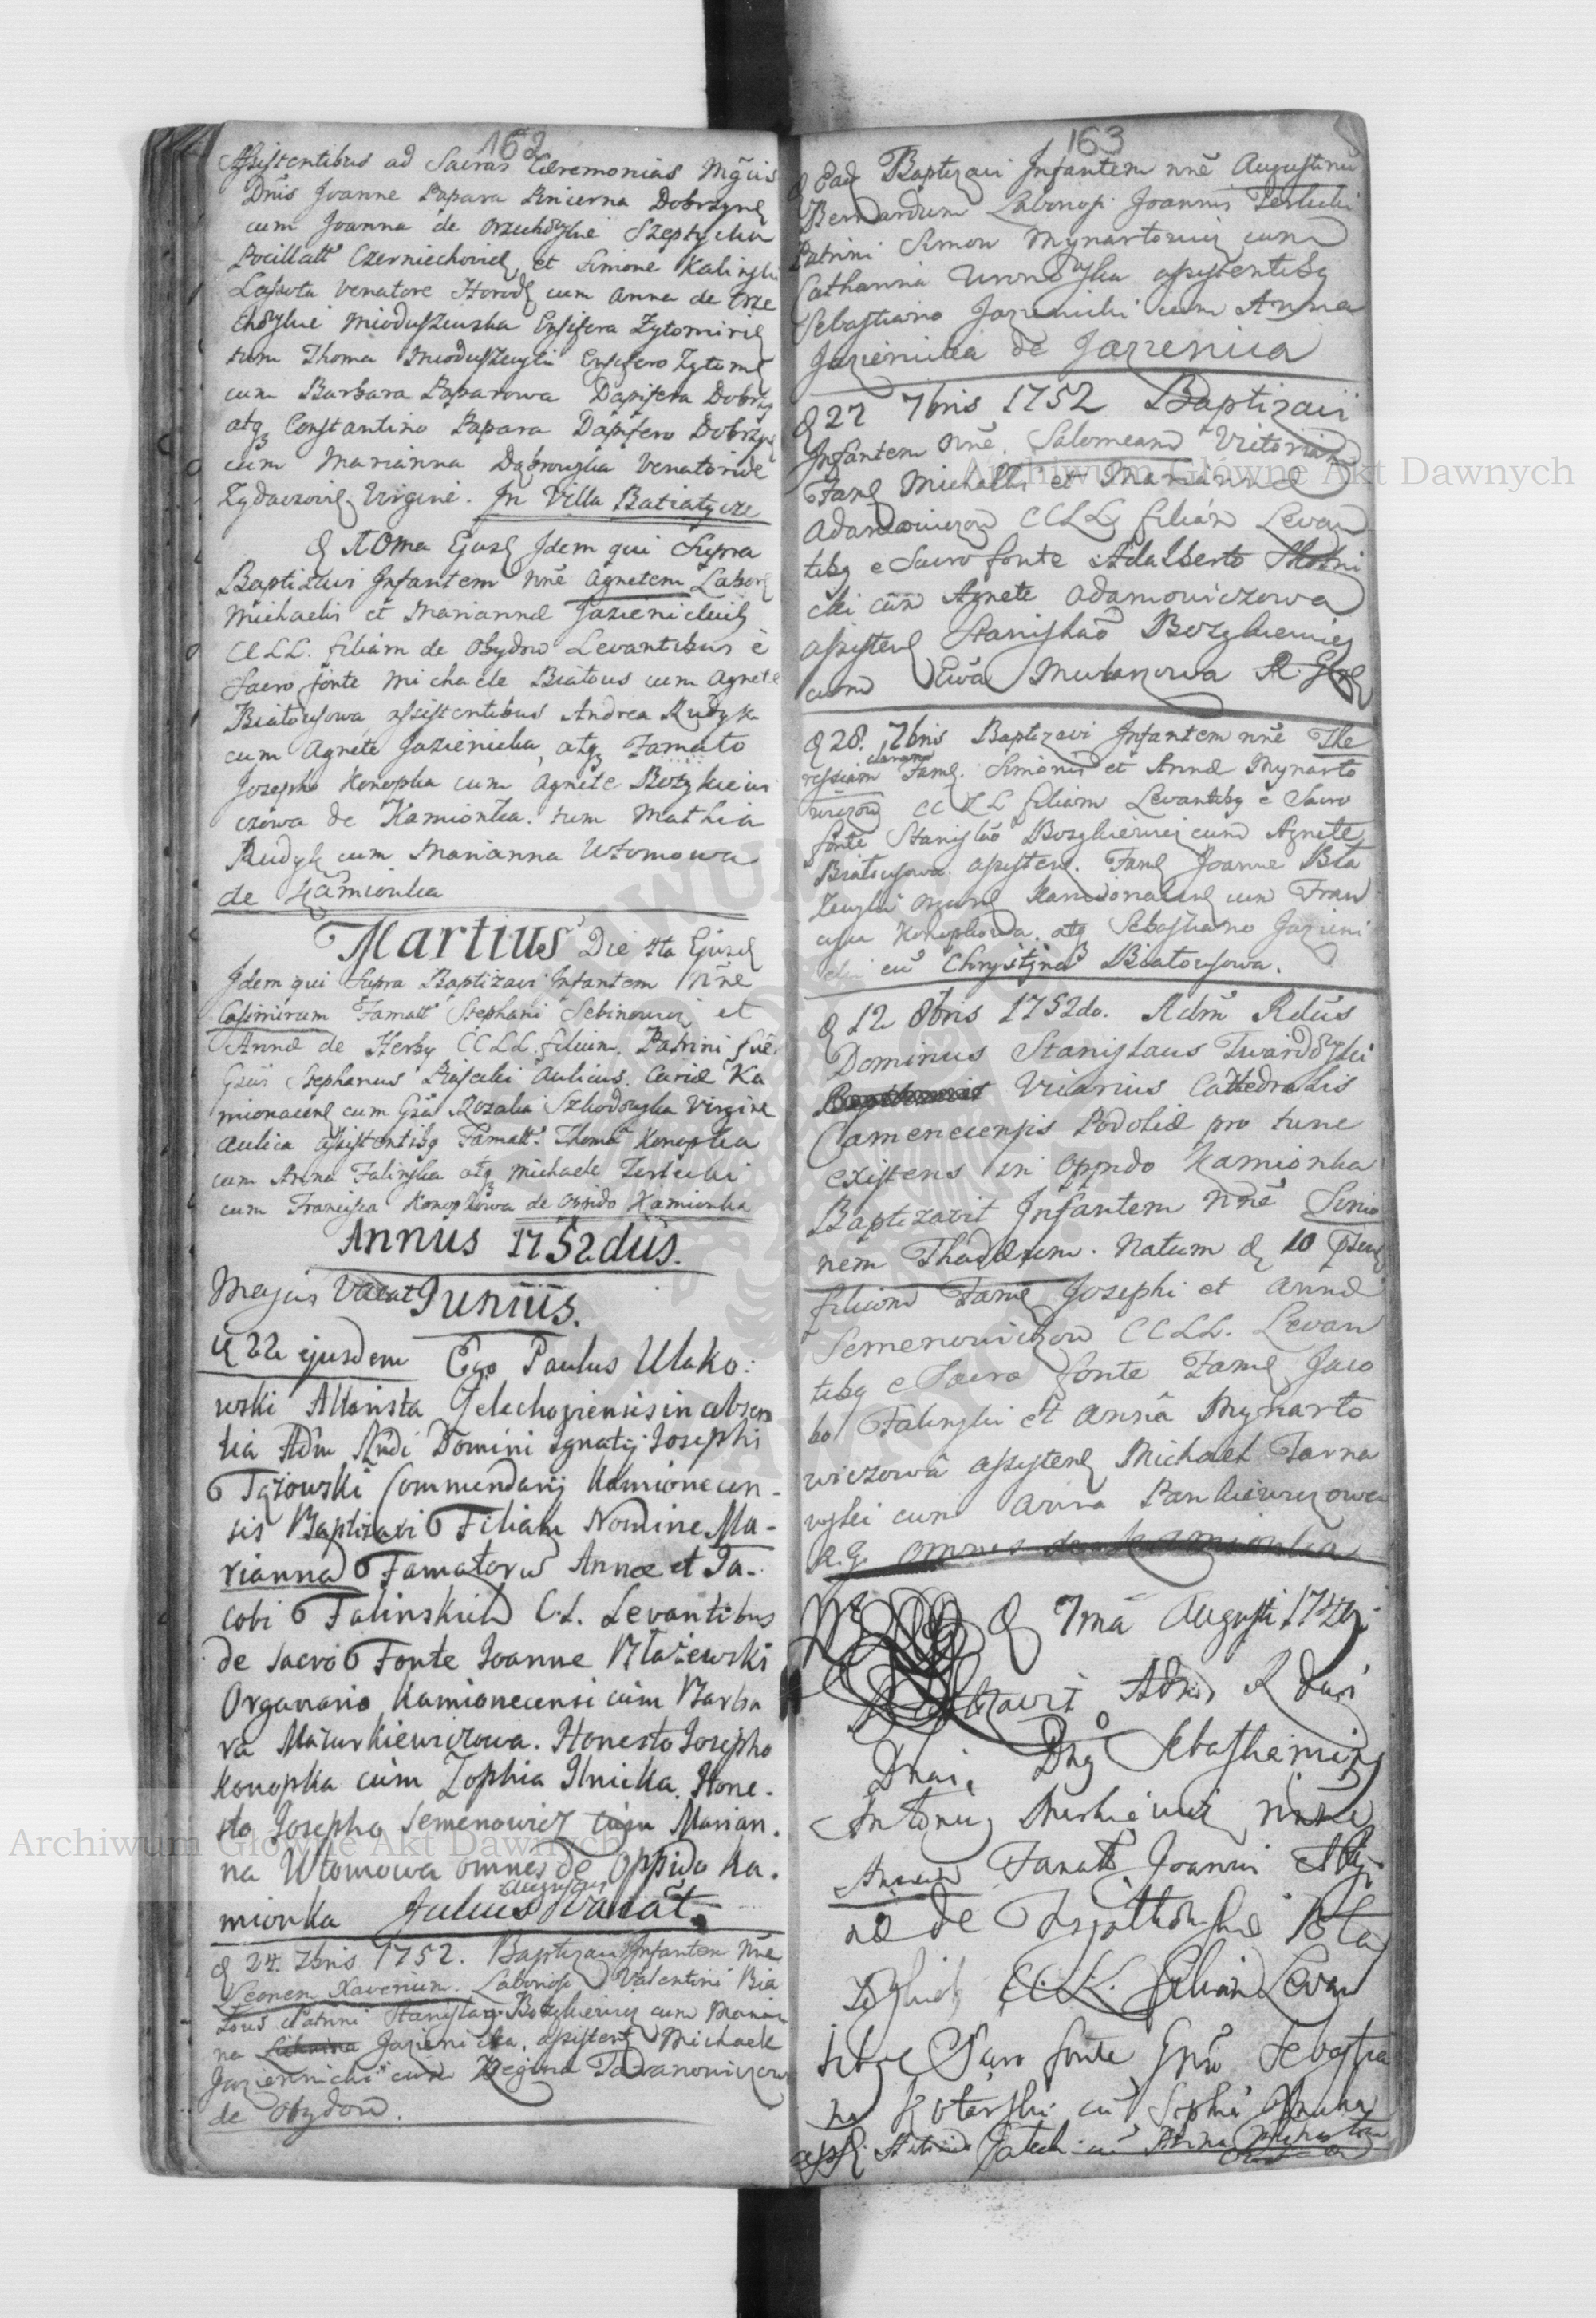 162
Assistentibus ad Sacras Ceremonias Mgcis
Dnis Joanne Papara Pincerna Dobrzyn
cum Joanna de Orzechoskie Szeptycka
Pocillatt Czerniechovien, et Simone Kalinski
Lassota Venatore Horod cum Anna de Orze
choskie Mioduszewska Ensifera Zytomirien
tum Thoma Mioduszewski Ensifero Zytom
cum Barbara Paparowa Dapifera Dobrzy
atq Constantino Papara Dapifero Dobrzyn
cum Marianna Dąbrowska Venatoride
Zydaczovien Virgine. In Villa Batiatycze
Idem qui Supra
Baptizavi Infantem nñe Agnetem Labor
Michaelis et Mariannæ Jazienickich
CCLL. filiam de Obydow Levantibus è
Sacro fonte Michaele Białous cum Agnete
Białousowa, assistentibus Andrea Rudyk
cum Agnete Jazienicka, atq Famato
Josepho Konopka cum Agnete Bożykiewi
czowa de Kamionka. tum Mathia
Rudyk cum Marianna Utomowa
de Kamionka
Martius Die 4ta Ejusd
Idem qui Supra Baptizavi Infantem Nñe
Casimirum Famatt Stephani Sebinowicz et
Annæ de Herby CCLL. filium. Patrini fuêr
Gsus Stephanus Piasecki Aulicus Curiæ Ka
mionacen cum Gsa Rozalia Szkodowska Virgine
Aulica assistentibg Famatt. Thoma Konopka
cum Anna Falinska atq Michaele Terlecki
cum Francisca Konopkowa de Oppido Kamionka
Annus 1752dus.
Majus Vacat Junius.
22 ejusdem Ego Paulus Ulako:
wski Altarista Gelechoviensis in absen
tia Adm Rndi Domini Ignatij Josephi
Tyżowski Commendarij Kamionecen-
sis Baptizavi Filiam Nomine Ma-
rianna Famatorũ Annæ et Ja-
cobi Falinskich C.L. Levantibus
de Sacro Fonte Joanne Błażewski
Organario Kamionecensi cum Barba
ra Mazurkiewiczowa. Honesto Josepho
Konopka cum Zophia Ilnicka. Hone-
sto Josepho Semenowicz cum Marian.
na Utomowa omnes de Oppido Ka.
mionka Julius Augustus Vacat.
24. 7bris 1752. Baptizavi Infantem Nñe
Leonem Xaverium. Laboriosi Valentini Bia
łous Patrini Stanislaus Bozykiewicz cum Marian
na Jazienicka, assistent Michaele
Jaziennicki cum Regina Tabanowiczowa
de Obydow.
163
Ead Baptizavi Infantem nñe Augustinũ
Bernardum Laborios Joannis Terlecki
Patrini Simon Mynartowicz cum
Catharina assistentibg
Sebastiano Jazienicki cum Anna
Jazienicka de Jazienica
27 7bris 1752 Baptizavi
Infantem Nñe. Salomeam Victoriam
Fam Michaelis et Mariannæ
Adamowiczow CCLL filiam Levan
tibg e Sacro fonte Adalberto Skotni
cki cum Agnete Adamowiczowa
assisten Stanislao Bozykiewicz
cum Ewa Mulanowa
28. 7bris Baptizavi Infantem nñe The
ressiam Claram Fam. Simonis et Annæ Mynarto
wiczow CCLL filiam Levantibg e Sacro
fonte Stanislao Bozykiewicz cum Agnete
Białousowa. assisten. Fam Joanne Bła
żewski Organ Kamionacen cum Fran
cisca Konopkowa. atq Sebastiano Jazieni
cki cũ Chrystina Białousowa.
12 8bris 1752do. Adm Rdus
Dominus Stanislaus Twardoski
Vicarius Cathedralis
Camenecensis Podoliæ pro tunc
existens in Oppido Kamionka
Baptizavit Infantem Nñe Simo
nem Thadæum. Natum 10 psen
filium Fam Josephi et Annæ
Semenowiczow CCLL. Levan
tibg e Sacro fonte Fam Jaco
bo Falinski et Anna Mynarto
wiczowa assisten Michael Tarna
wski cum Anna Pankiewiczowa
omnes de Kamionka
7ma Augusti
Baptizavit Adm Rdus
Dnus
Antonius nñe
Annam Famatt Joannis et An
næ de
CCLL. filiam Levan
tibg e Sacro fonte Sebastia
no Kotarski cũ Sophia
cũ Anna